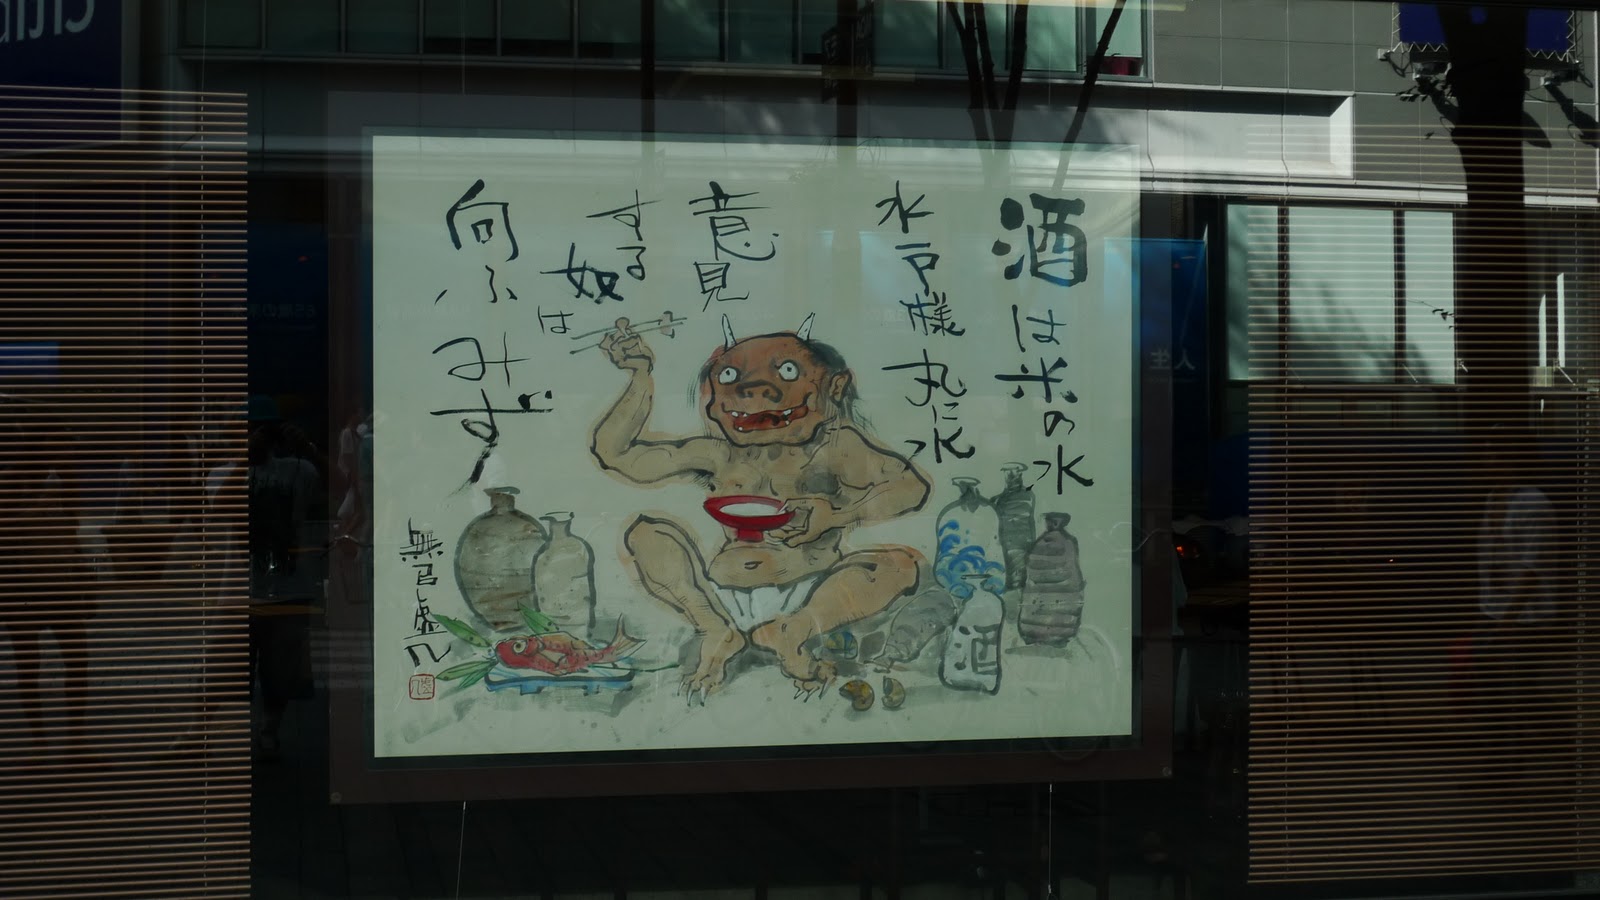 酒は米の水
水戸様丸に水
意見
する奴は
向ふみず
酒